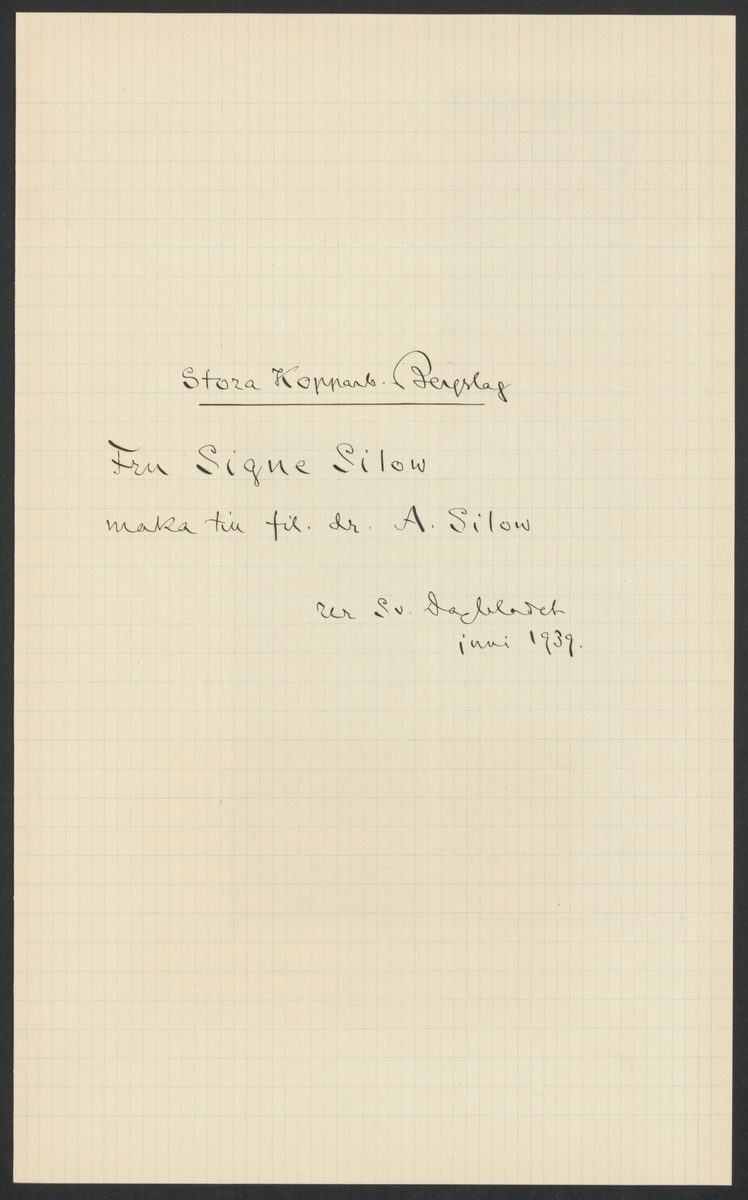 Stora Kopparb. Bergslag
Fru Signe Silow
maka till fil. dr. A. Silow
Ur Sv. Dagbladet
juni 1939.